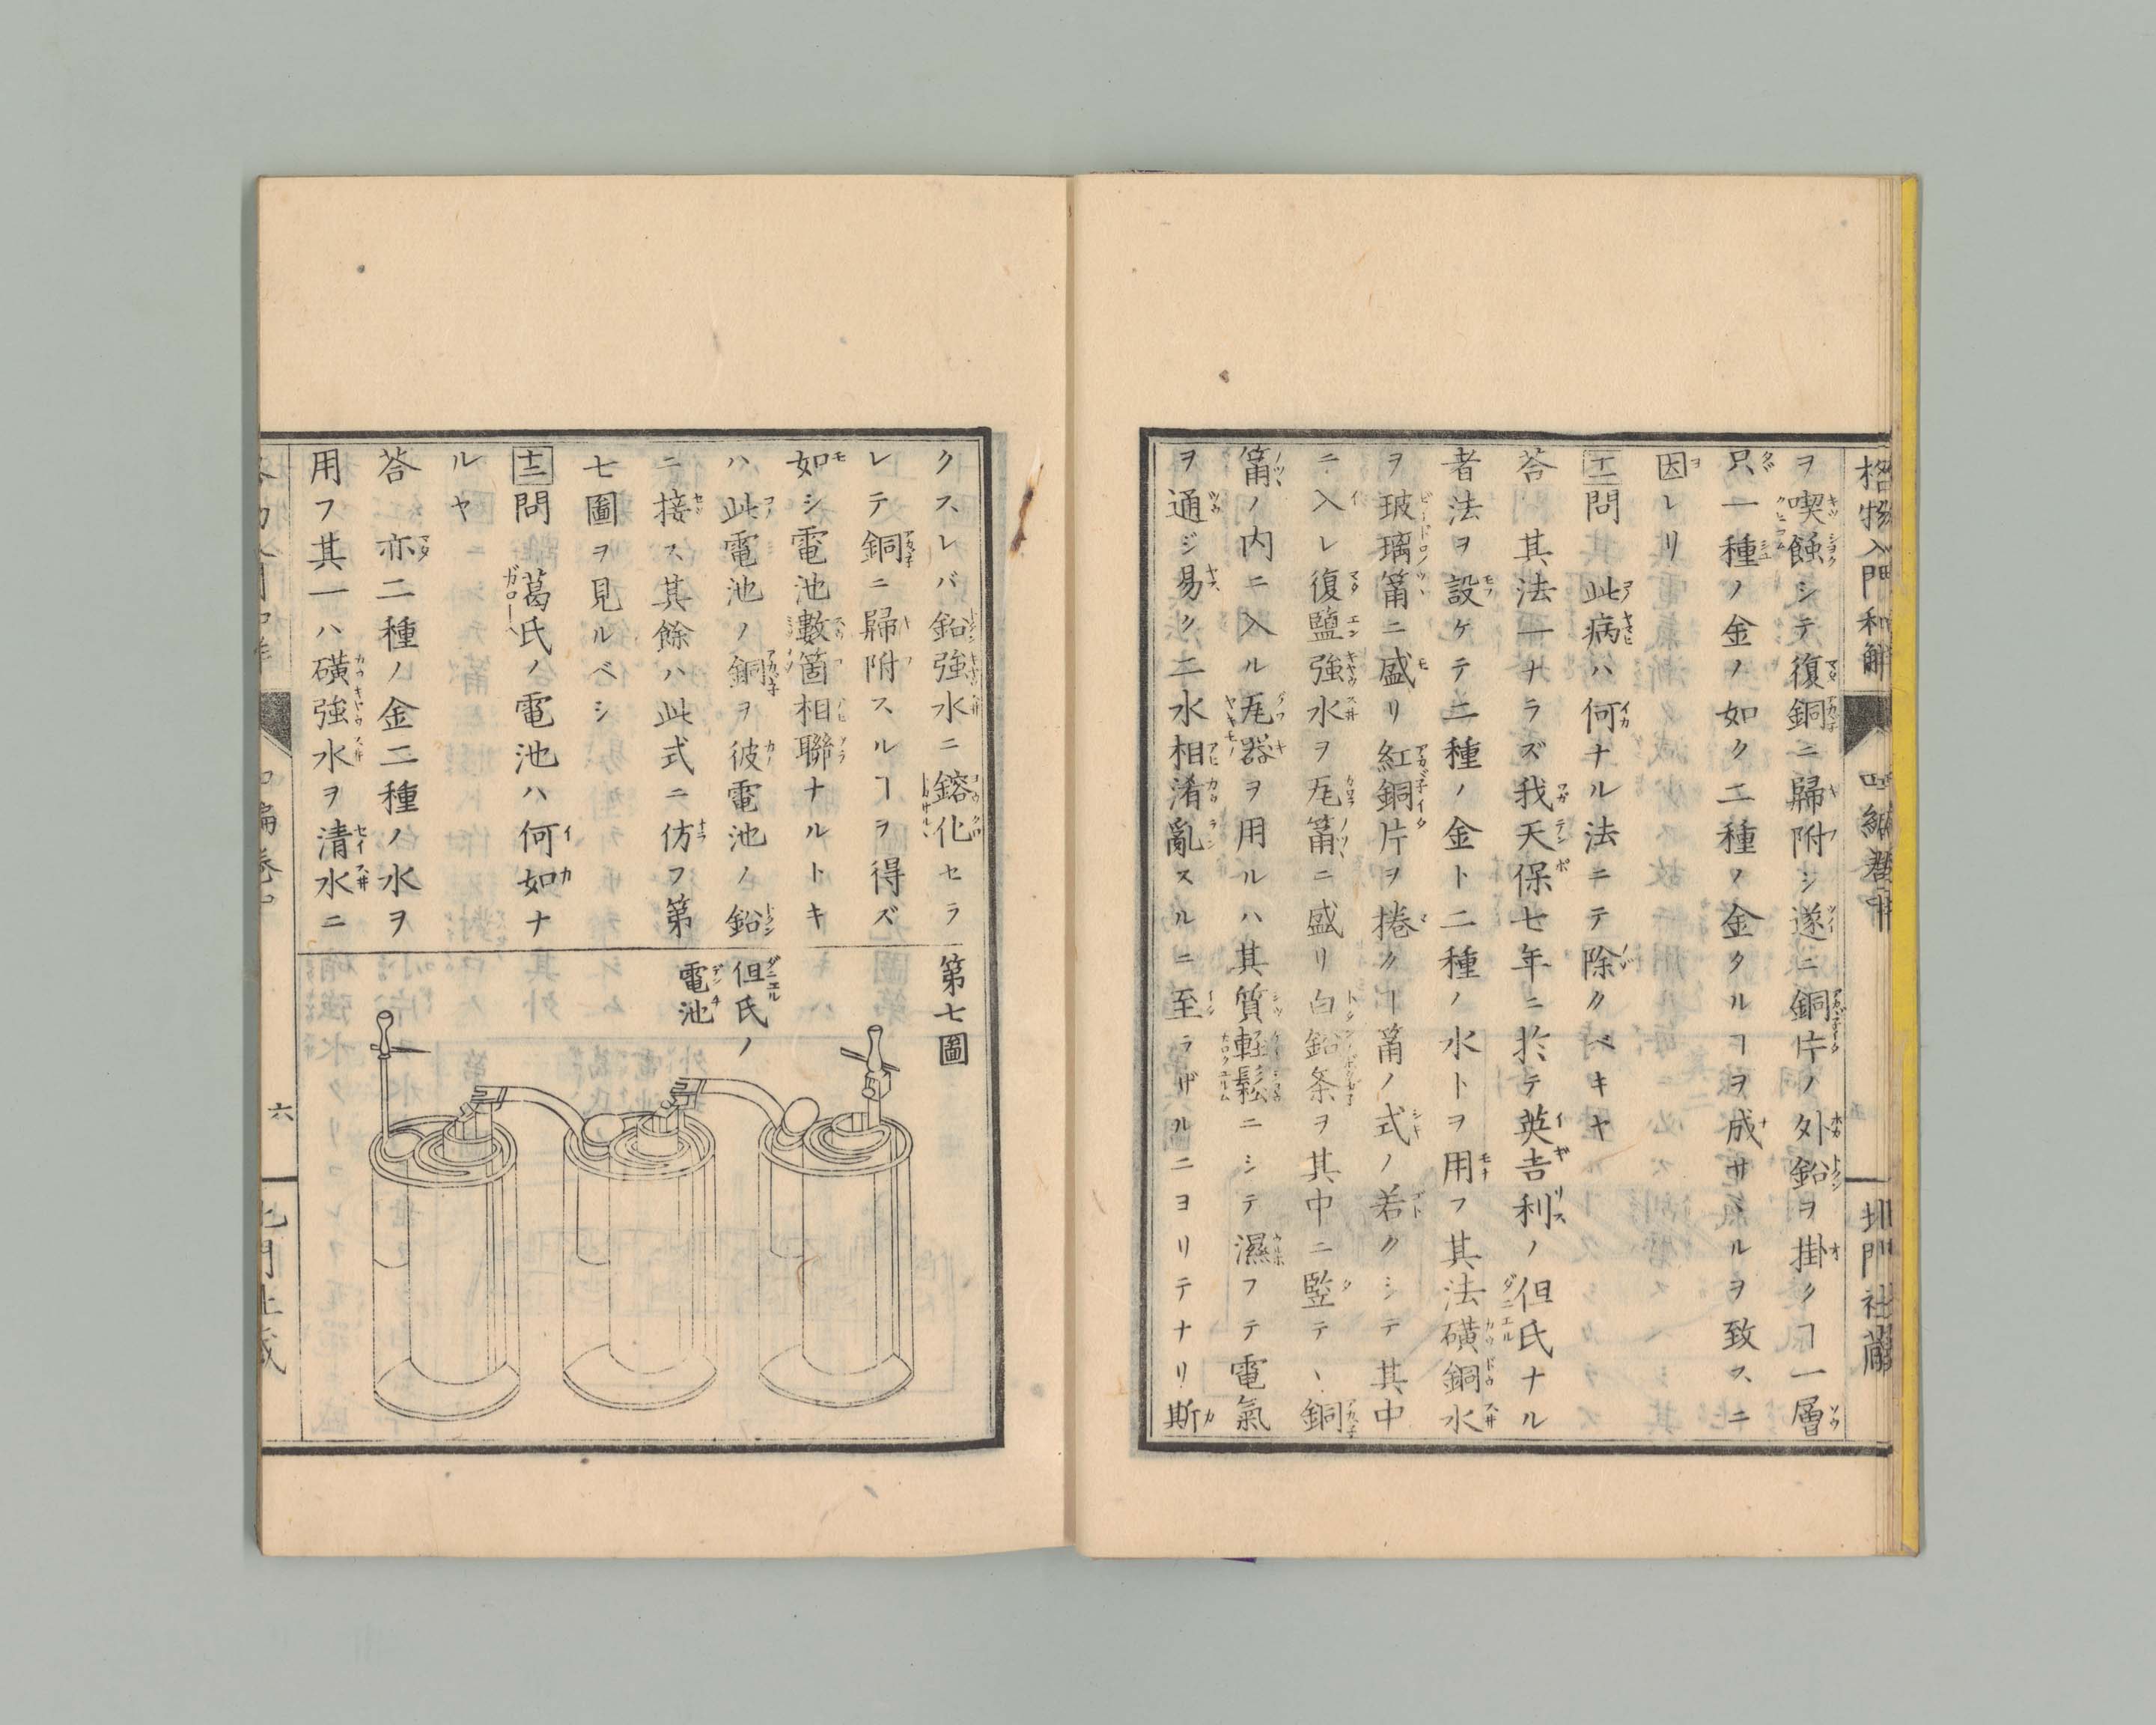 格物入門和解
北門社蔵
ヲ喫蝕シテ復銅ニ歸附シ遂ニ銅片ノ外鉛ヲ掛クヿ一層
只一種ノ金ノ如ク二種ノ金タルヿヲ成サヾルヲ致スニ
因レリ
十一問　此病ハ何ナル法ニテ除クベキヤ
答　其法一ナラズ我天保七年ニ於テ英吉利ノ但氏ナル
者法ヲ設ケテ二種ノ金ト二種ノ水トヲ用フ其法磺銅水
ヲ玻璃筩ニ盛リ紅銅片ヲ捲クヿ筩ノ式ノ若クシテ其中
ニ入レ復鹽強水ヲ瓦筩ニ盛リ白鉛条ヲ其中ニ竪テヽ銅
筩ノ内ニ入ル瓦器ヲ用ルハ其質軽鬆ニシテ濕フテ電氣
ヲ通ジ易ク二水相淆亂スルニ至ラザルニヨリテナリ斯
クスレバ鉛強水ニ鎔化セラ
レテ銅ニ歸附スルヿヲ得ズ
如シ電池數箇相聯ナルトキ
ハ此電池ノ銅ヲ彼電池ノ鉛
ニ接ス其餘ハ此式ニ仿フ第
七圖ヲ見ルベシ
十二問　葛氏ノ電池ハ何如ナ
ルヤ
答　亦二種ノ金二種ノ水ヲ
用フ其一ハ磺強水ヲ清水ニ
第七圖
但氏ノ
電池
六